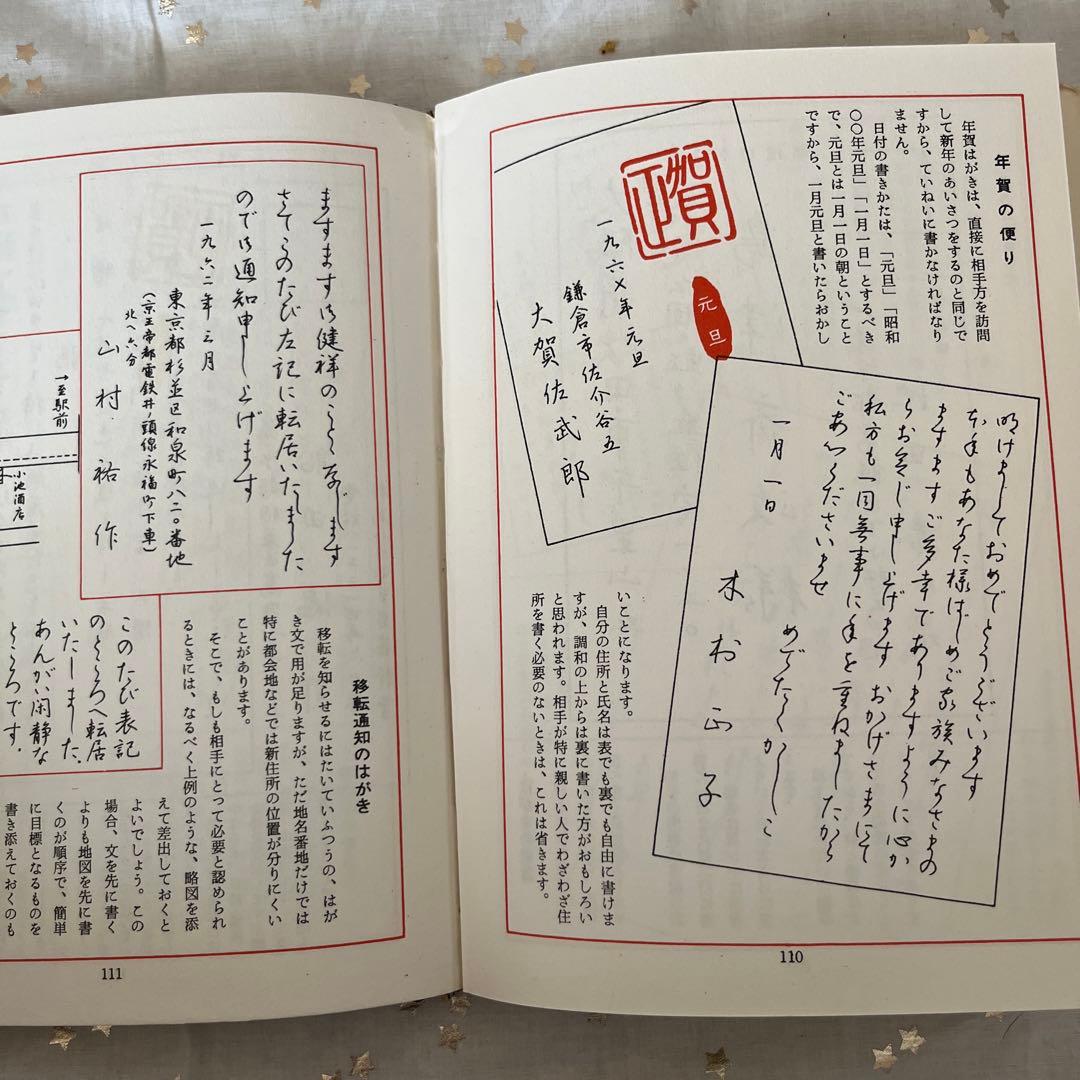 年賀の便り
年賀はがきは、直接に相手方を訪問
して新年のあいさつをするのと同じで
すから、ていねいに書かなければなり
ません。
日付の書きかたは、「元旦」「昭和
〇〇年元旦」「一月一日」とするべき
で、元旦とは一月一日の朝ということ
ですから、一月元旦と書いたらおかし
賀正
元旦
一九六〤年元旦
鎌倉市佐介谷五
大賀佐武郎
明けましておめでとうございます
本年もあなた様はじめご家族みなさまの
ますますご多幸でありますように心か
らお念じ申し上げます おかげさまにて
私方も一同無事に年を重ねましたから
ご安心くださいませ
めでたくかしこ
一月一日
木村正子
いことになります。
自分の住所と氏名は表でも裏でも自由に書けま
すが、調和の上からは裏に書いた方がおもしろい
と思われます。相手が特に親しい人でわざわざ住
所を書く必要のないときは、これは省きます。
110
ますます御健祥のことと存じます
さてこのたび左記に転居いたしました
ので御通知申し上げます
一九六二年三月
東京都杉並区和泉町八二〇番地
(京王帝都電鉄井ノ頭線永福町下車)
北へ六分
山村祐作
→至駅前
小池酒店
移転通知のはがき
移転を知らせるにはたいていふつうの、はが
き文で用が足りますが、ただ地名番地だけでは
特に都会地などでは新住所の位置が分りにくい
ことがあります。
そこで、もしも相手にとって必要と認められ
るときには、なるべく上例のような、略図を添
えて差出しておくと
よいでしょう。この
場合、文を先に書く
よりも地図を先に書
くのが順序で、簡単
に目標となるものを
書き添えておくのも
このたび表記
のところへ転居
いたしました。
あんがい閑静な
ところです。
111